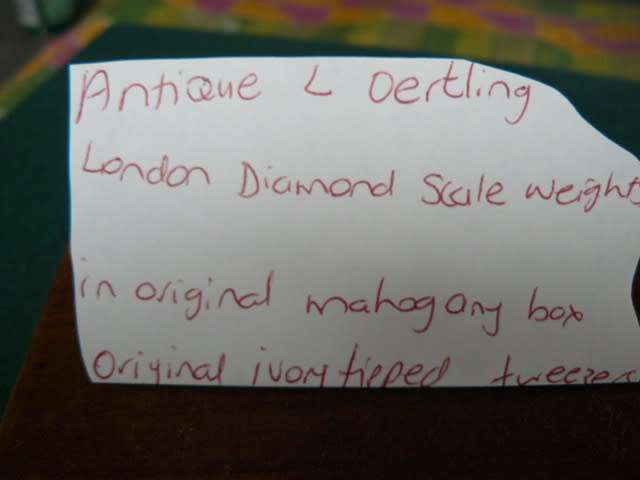 Antique L Oertling
London Diamond Scale weights
in original mahogany box
Original ivory tipped tweezers